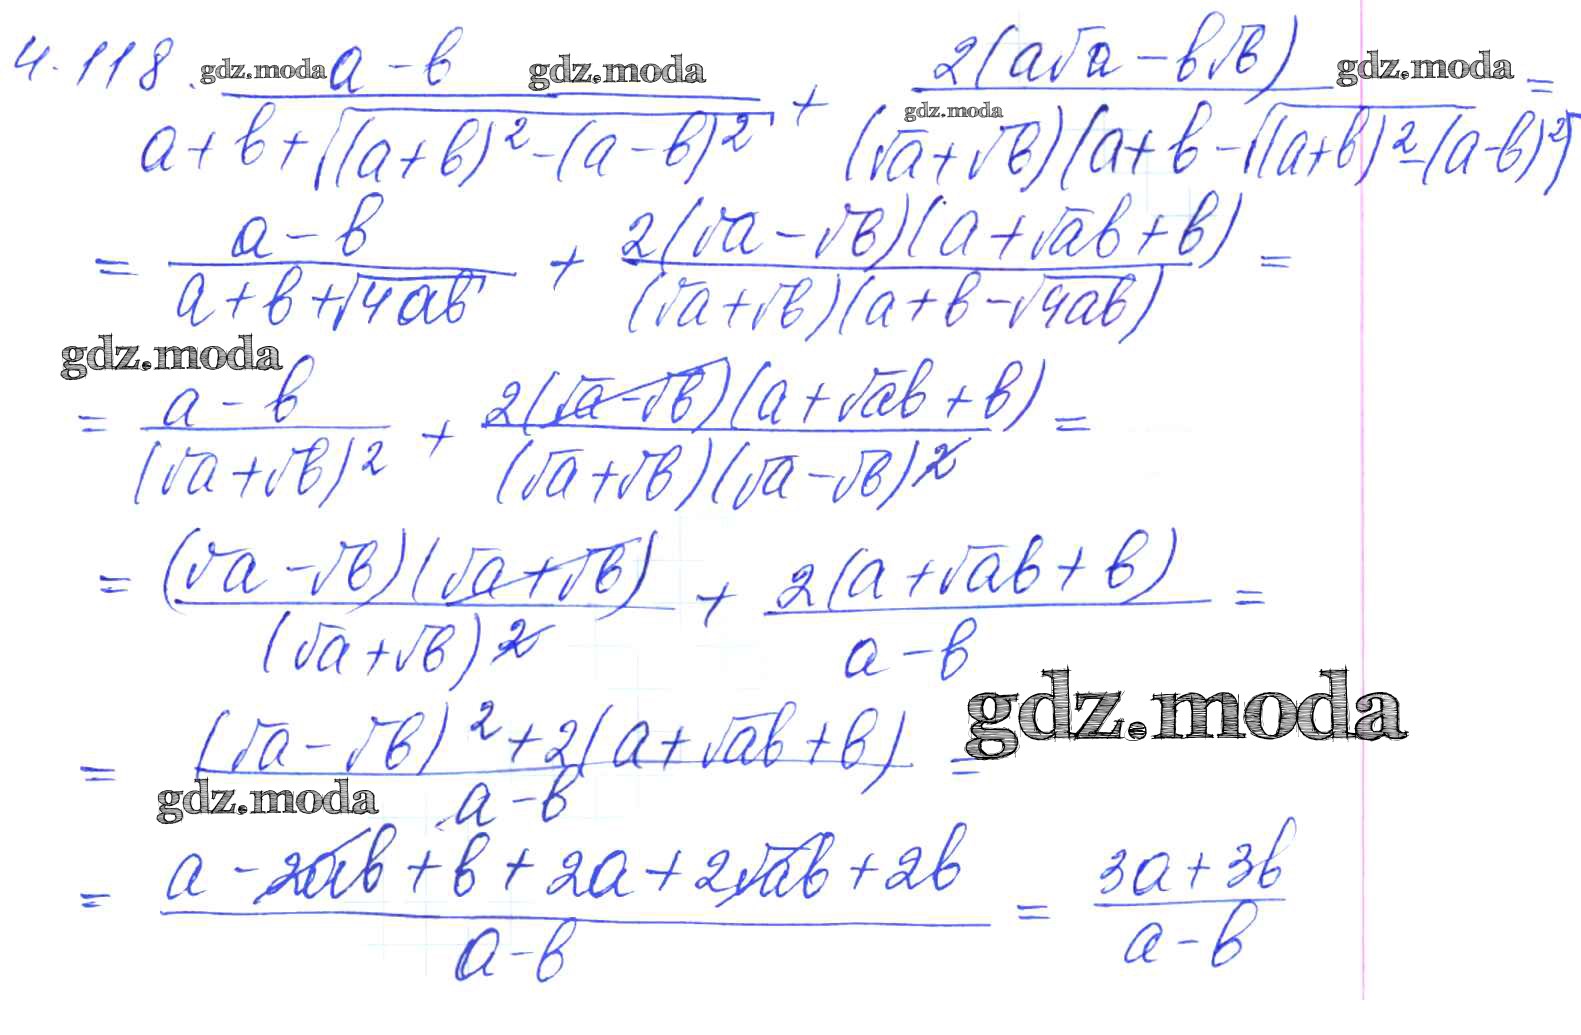 4.118. gdz.moda a - b gdz.moda / a + b + √((a+b)² - (a-b)²) + 2(a√a - b√b) gdz.moda / gdz.moda (√a + √b)(a + b - √((a+b)² - (a-b)²)) =
= a - b / a + b + √4ab + 2(√a - √b)(a + √ab + b) / (√a + √b)(a + b - √4ab) =
gdz.moda
= a - b / (√a + √b)² + 2(√a - √b)(a + √ab + b) / (√a + √b)(√a - √b)² =
= (√a - √b)(√a + √b) / (√a + √b)² + 2(a + √ab + b) / a - b =
gdz.moda
= (√a - √b)² + 2(a + √ab + b) / a - b =
gdz.moda
= a - 2√ab + b + 2a + 2√ab + 2b / a - b = 3a + 3b / a - b